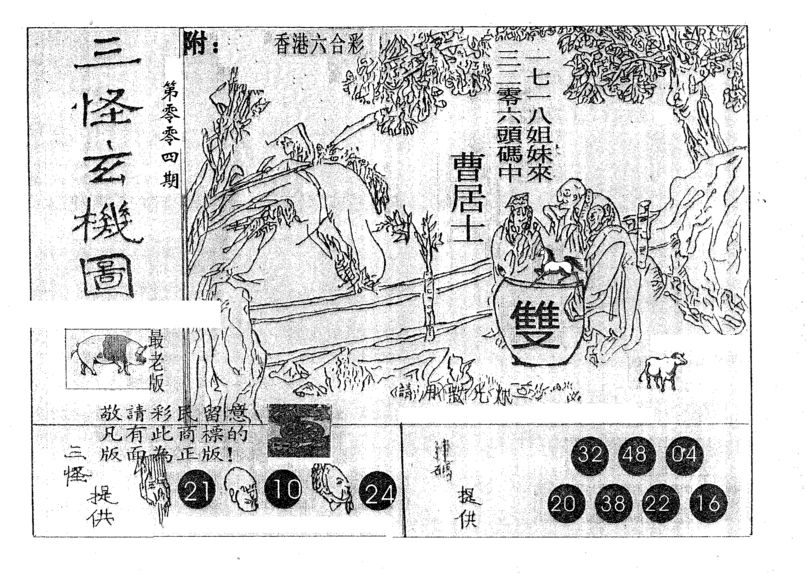 三怪玄機圖
第零零四期
附：
香港六合彩
一七一八姐妹來
三二零六頭碼中
曹居士
雙
最老版
敬請彩民留意
凡有此商標的
版面為正版！
三怪
提供
21
10
24
提供
32 48 04
20 38 22 16